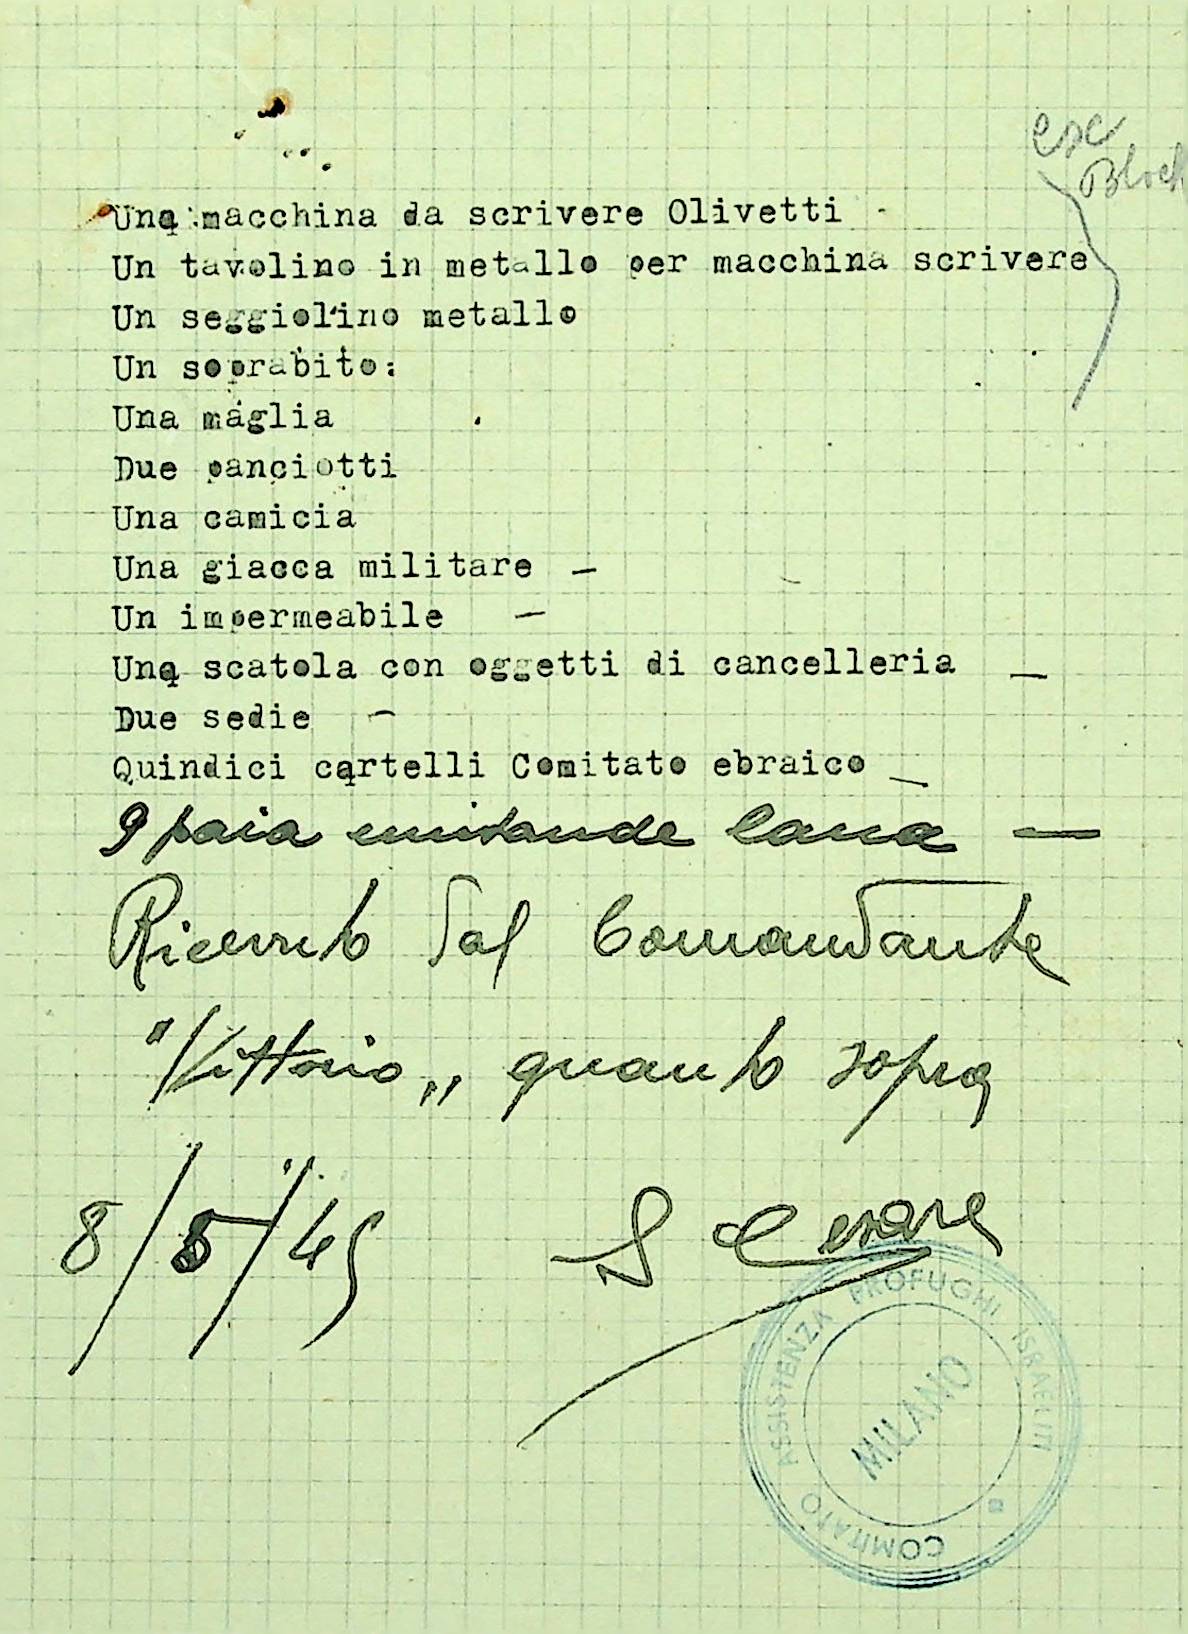 esc
Bloch
Una macchina da scrivere Olivetti -
Un tavolino in metallo per macchina scrivere
Un seggiolino metallo
Un soprabito:
Una maglia
Due panciotti
Una camicia
Una giacca militare —
Un impermeabile —
Una scatola con oggetti di cancelleria —
Due sedie —
Quindici cartelli Comitato ebraico —
9 paia mutande lana —
Ricevuto dal Comandante
"Vittorio" quanto sopra
8/5/45
S Cesare
COMITATO ASSISTENZA PROFUGHI ISRAELITI
MILANO